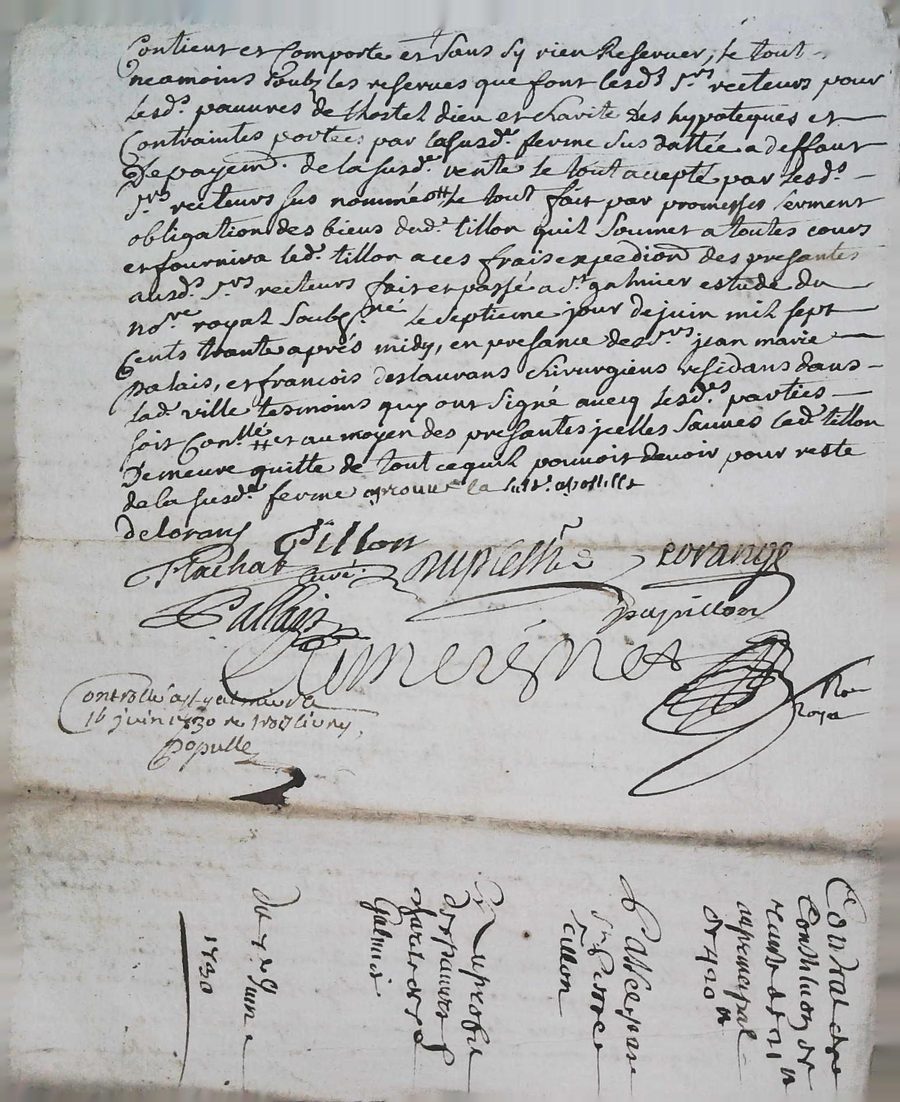 Contient et Comporte et sans sy rien Reserver, le tout
neamoins soubz les reserves que font lesd. srs recteurs pour
lesd. pauvres de lhostel dieu et charité des hypoteques et
Contraintes portées par lasusde ferme sus dattée a deffaut
De payemt. de la susde vente le tout accepté par lesd.
srs recteurs sus nommés le tout fait par promesses serment
obligation des biens dudt tillon quil soumet a toutes cours
et fournira ledt tillon a ces frais expedition des presantes
ausd. srs recteurs fait et passé a st galmier estude du
nore royal soubz.né le septieme jour de juin mil sept
Cents trante aprés midy, en presance des srs jean marie
palais, et francois deslaurans chirurgiens residans dans
lade ville tesmoins quy ont signé avecq lesdes parties
soit Conlle et au moyen des presantes jcelles sauves ledt tillon
Demeure quitte de tout ce quil pouvoit devoir pour reste
de la susde ferme aprouvé la apostille
delorans Tillon
Flachat curé
Pallais papillon
no
Roya
Controllé a st galmier le
16 juin 1730 re trois livres
Populle
Contrat de
Constitution de
rante de 21 tt
au principal
de 420 tt
Passé par
sr Pierre
Tillon
Au profit
des pauvres
charité de st
Galmier
du 7e Juin
1730